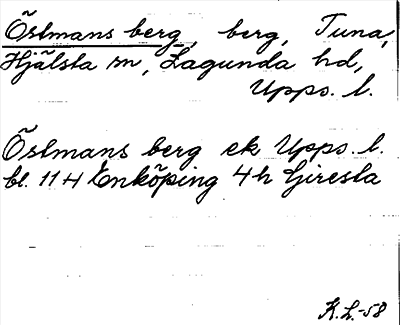 Östmans berg, berg, Tuna,
Hjälsta sn, Lagunda hd,
Upps. l.
Östmans berg ek Upps. l.
bl. 11 H Enköping 4h Giresta
K.L.-58